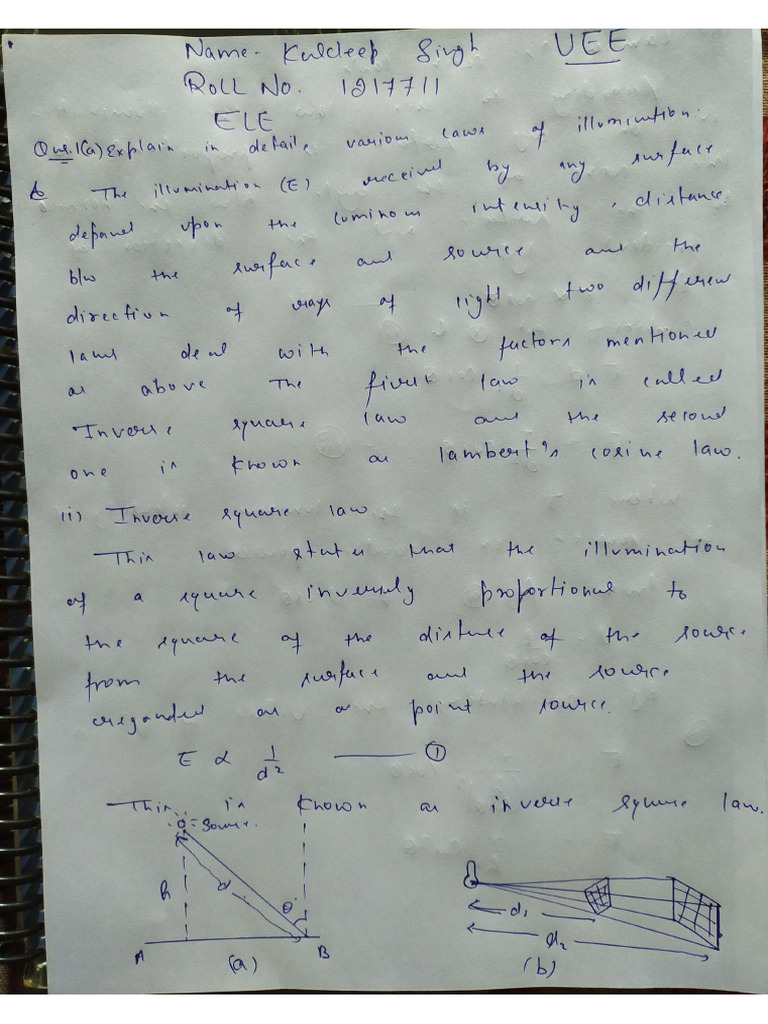 Name- Kuldeep Singh UEE
ROLL No. 1217711
ELE
Que.1(a) Explain in detail, various laws of illumination.
The illumination (E) received by any surface
depand upon the luminous intensity, distance
b/w the surface and source and the
direction of rays of light two different
laws deal with the factors mentioned
as above The first law is called
Inverse square law and the second
one is known as lambert's cosine law.
(i) Inverse square law
This law states that the illumination
of a square inversely proportional to
the square of the distnce of the source
from the surface and the source
reganded as a point source.
E ∝ 1/d² —— ①
This is known as inverse square law.
Source.
h d θ
A B
(a)
d₁
d₂
(b)